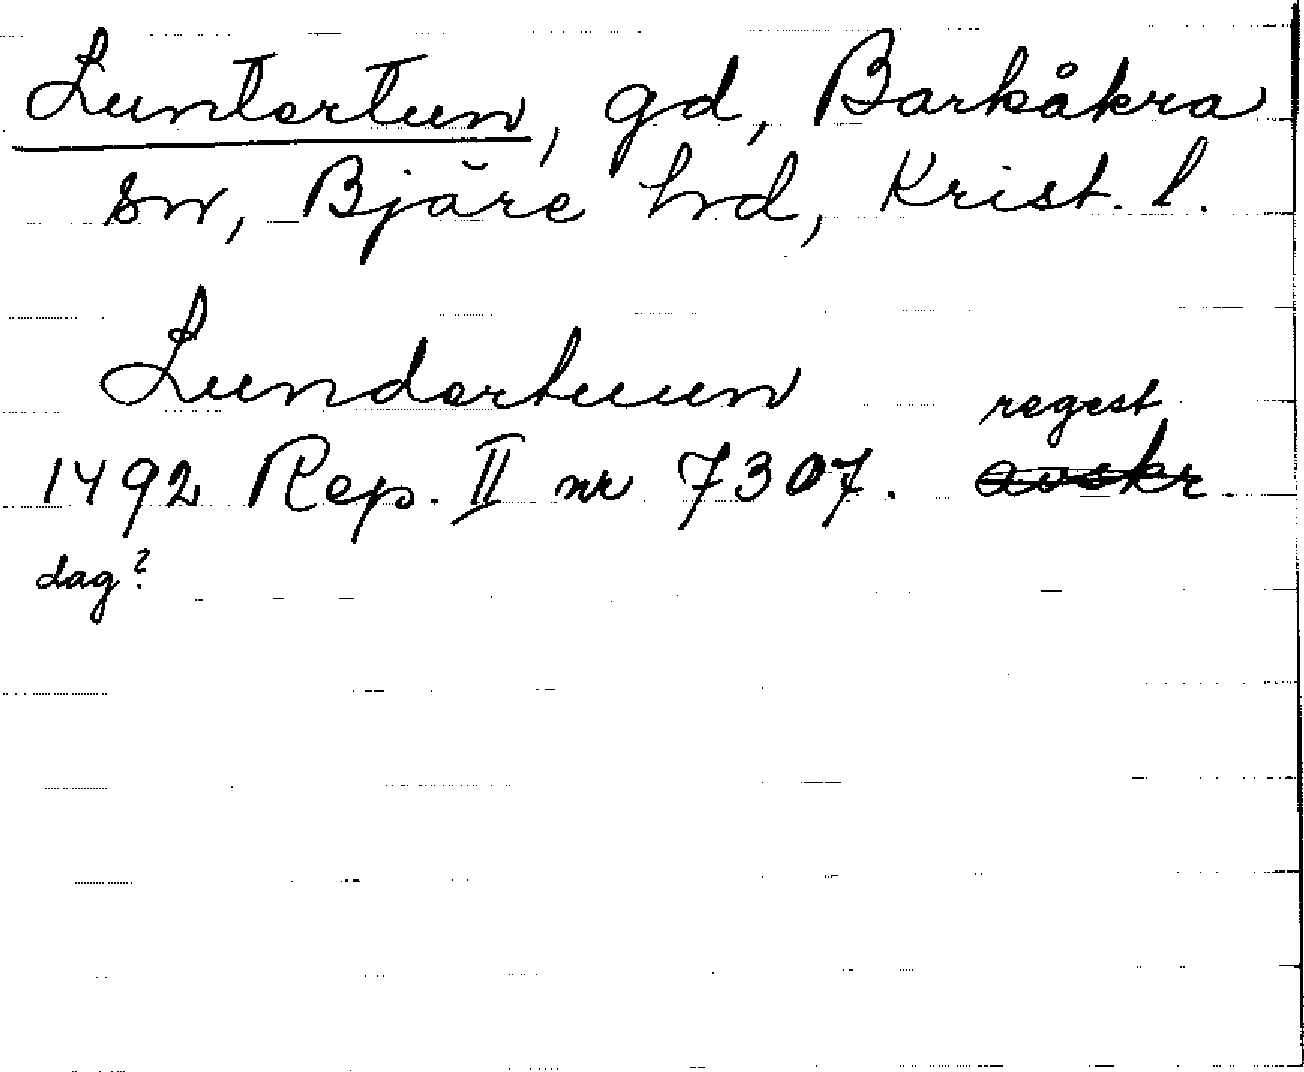 Luntertun, gd, Barkåkra
sn, Bjäre hd, Krist. l.
Lundertuun
regest
1492 Rep. II nr 7307. avskr.
dag?